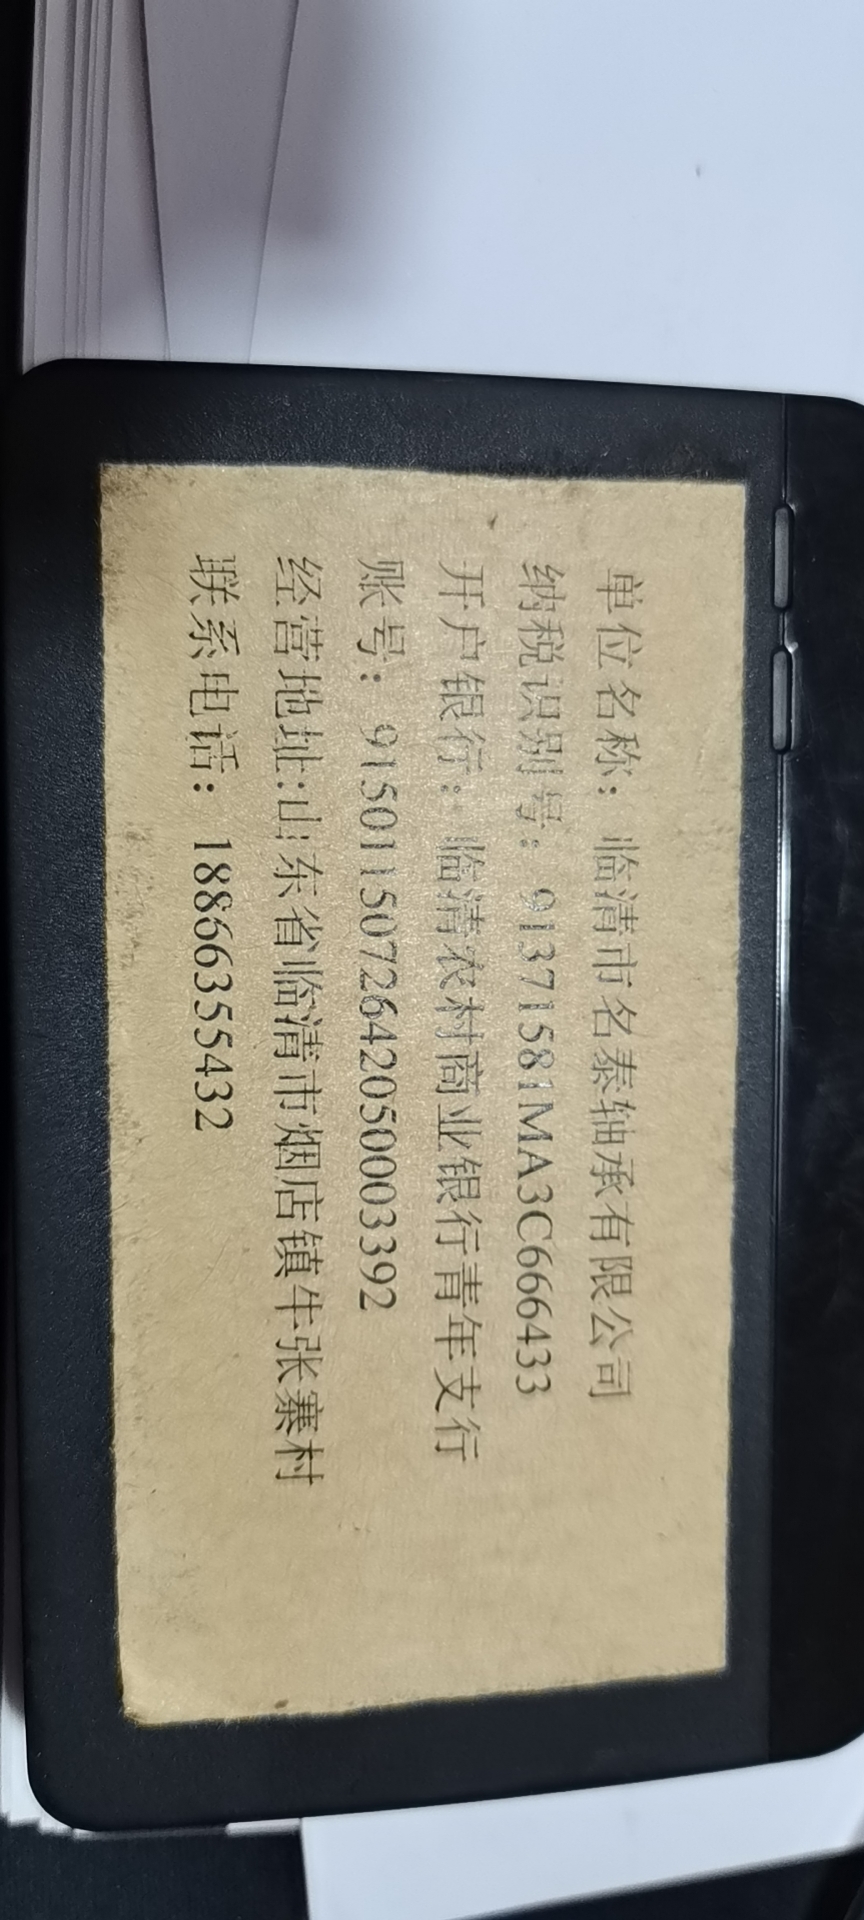 单位名称：临清市名泰轴承有限公司
纳税识别号：91371581MA3C666433
开户银行：临清农村商业银行青年支行
账号：9150115072642050003392
经营地址:山东省临清市烟店镇牛张寨村
联系电话：18866355432